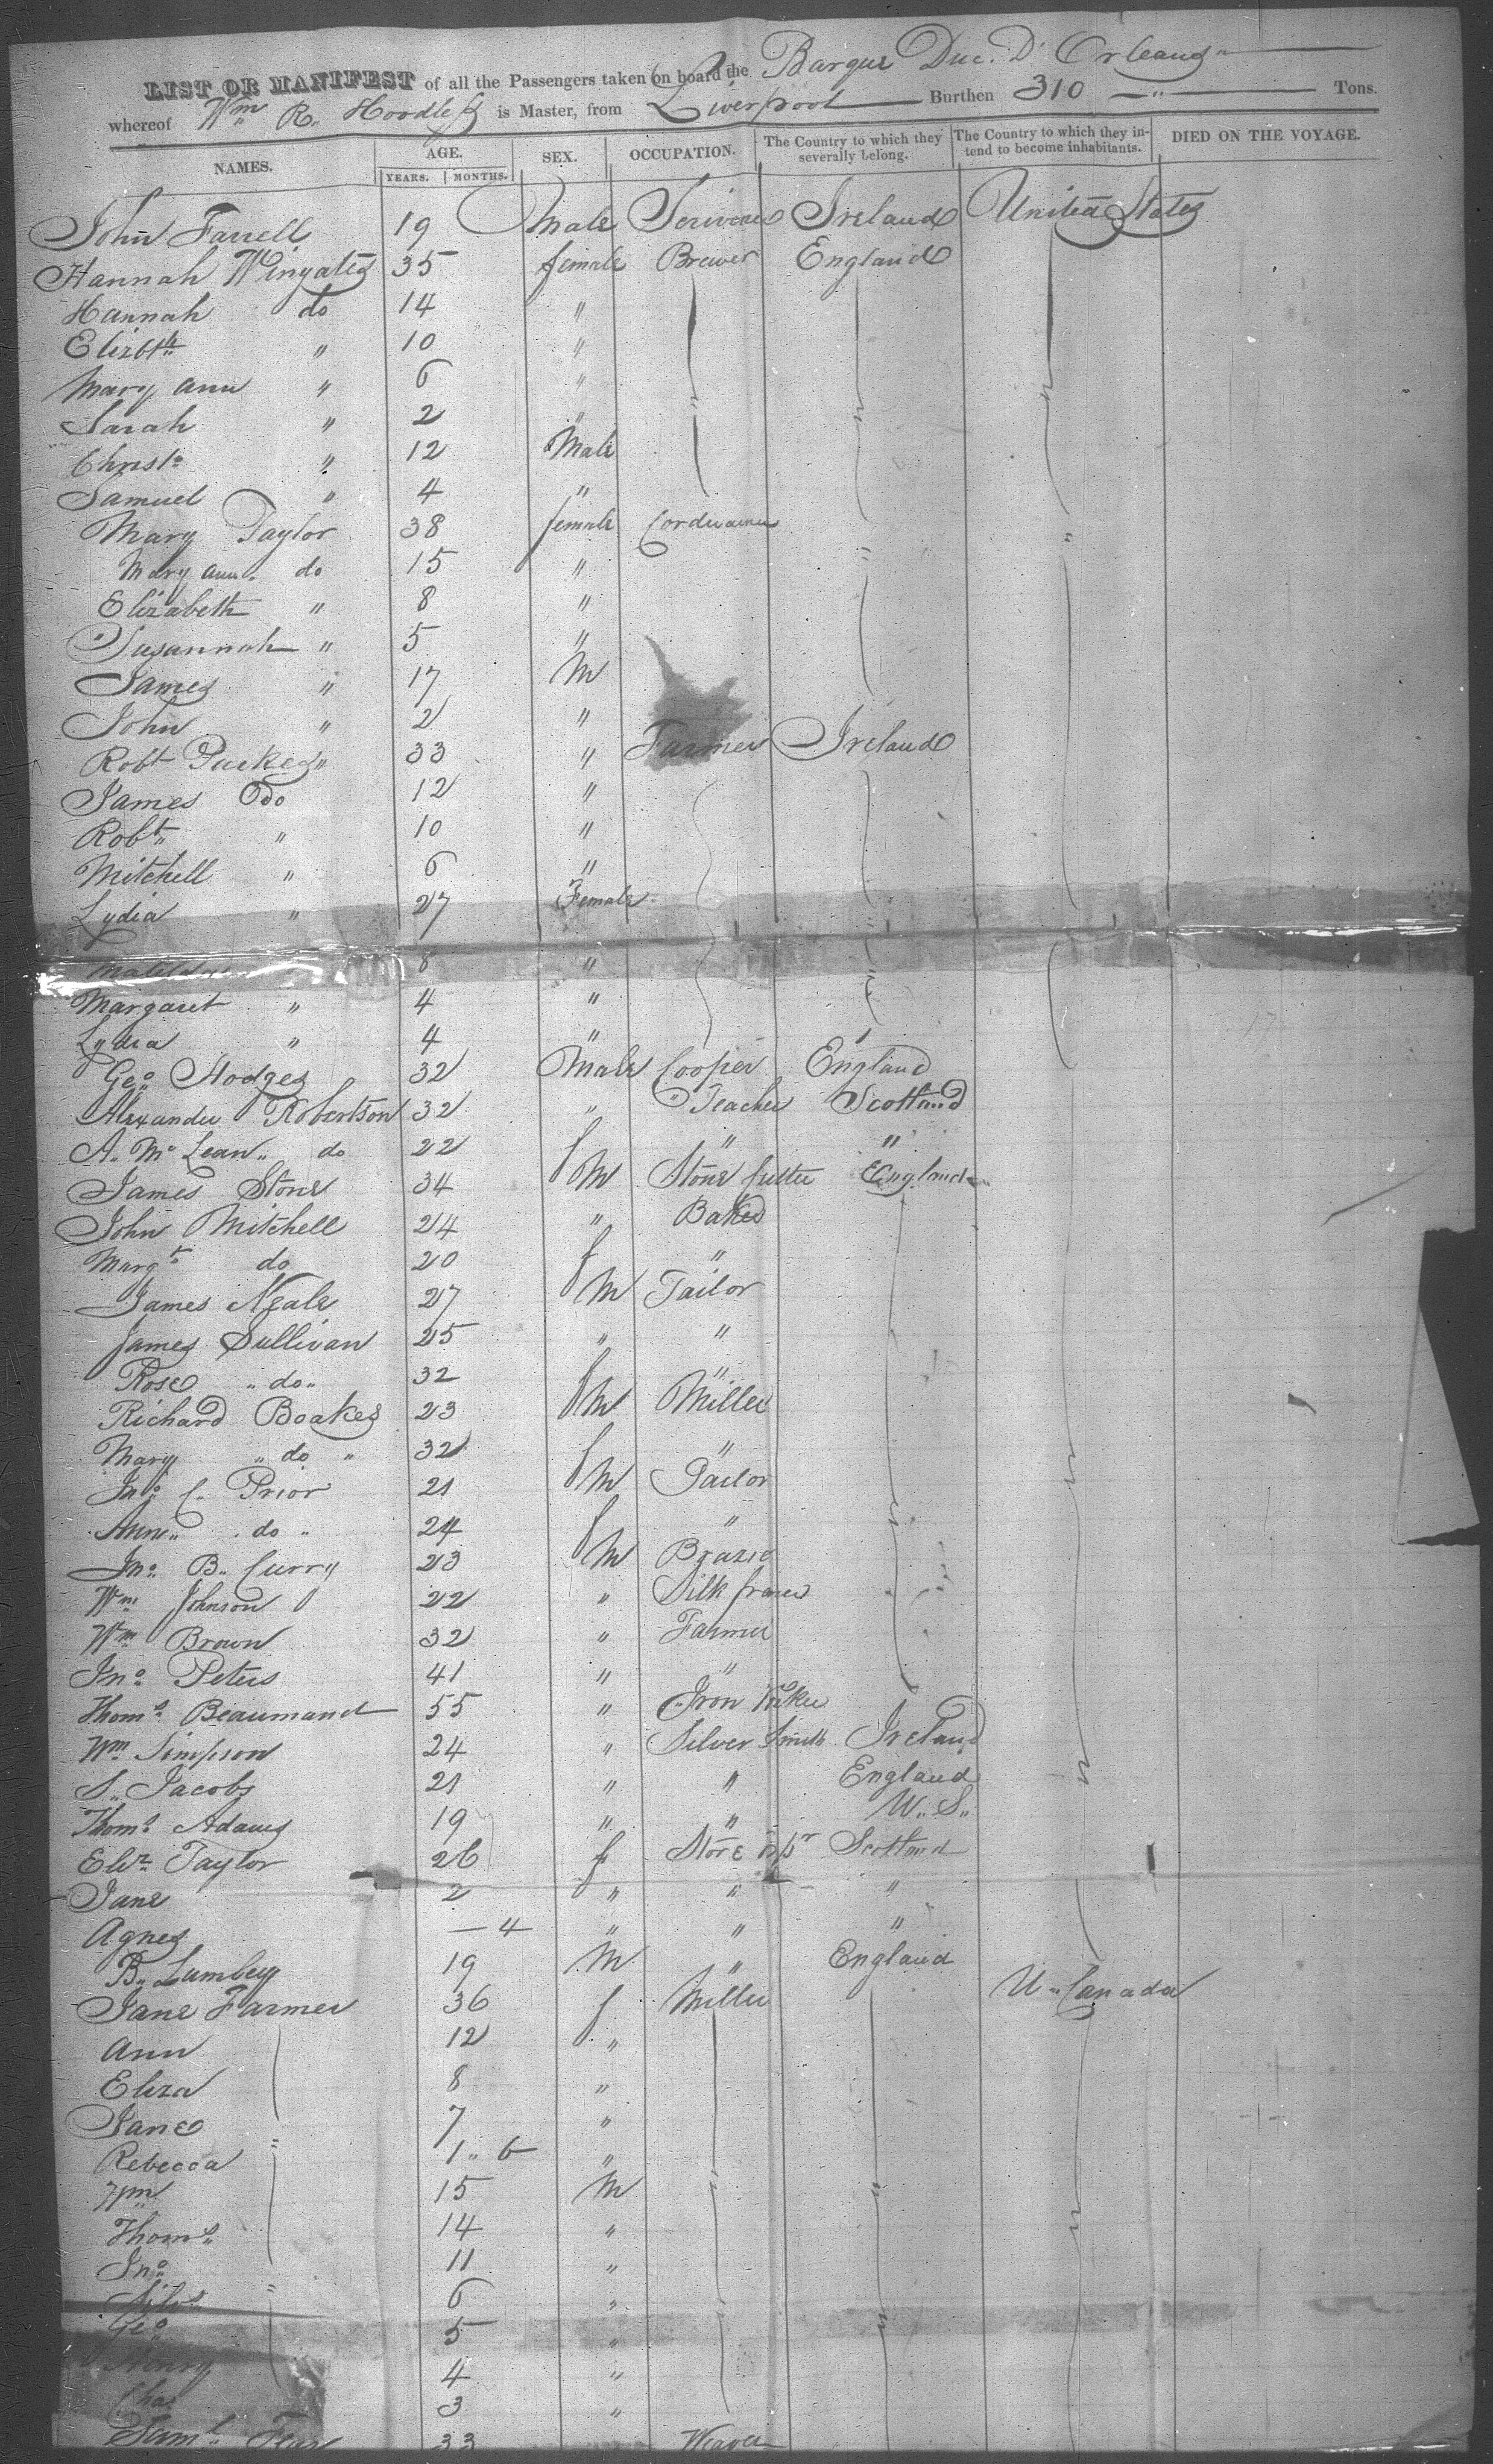 LIST OR MANIFEST of all the Passengers taken on board the Barque Duc. D' Orleans
whereof Wm R. Hoodless is Master, from Liverpool Burthen 310 Tons.
NAMES. AGE. YEARS. MONTHS. SEX. OCCUPATION. The Country to which they severally belong. The Country to which they intend to become inhabitants. DIED ON THE VOYAGE.
John Farrell 19 Male Scrivener Ireland United States
Hannah Wingates 35 female Brewer England
Hannah do 14 "
Elizbth " 10 "
Mary Ann " 6 "
Sarah " 2 "
Christo " 12 Male
Samuel " 4 "
Mary Taylor 38 female Cordwainer
Mary Ann. do 15 "
Elizabeth " 8 "
Susannah " 5 "
James " 17 M
John " 2 "
Robt " 33 " Farmer Ireland
James do 12 "
Robt " 10 "
Mitchell " 6 "
Lydia " 27 Female
Matilda 8 "
Margaret " 4 "
Lydia " 4 "
Geo. Hodges 32 Male Cooper England
Alexander Robertson 32 " Teacher Scotland
A. Mc Lean " do 22 f " "
James Stone 34 M Stone Cutter England
John Mitchell 24 " Baker
Margt do 20 f "
James Neale 27 M Tailor
James Sullivan 25 " "
Rose " do " 32 f "
Richard Boakes 23 M Miller
Mary " do " 32 f "
Jno. C. Prior 21 M Tailor
Ann " do " 24 f "
Jno. B. Curry 23 M Brazier
Wm Johnson 22 " Silk
Wm Brown 32 " Farmer
Jno. Peters 41 " "
Thoms. Beaumand 55 " Iron
Wm Simpson 24 " Silver Smith Ireland
S. Jacobs 21 " " England
Thoms. Adams 19 " " U. S.
Elizr. Taylor 26 f Store kpr Scotland
Jane 2 " " "
Agnes — 4 " " "
B. Lumbey 19 M " England
Jane Farmer 36 f Miller U. Canada
Ann 12 "
Eliza 8 "
Jane 7 "
Rebecca 1 " 6 "
Wm 15 M
Thoms. 14 "
Jno. 11 "
6 "
Geo 5 "
Henry 4 "
Chas 3 "
Saml. 33 Weaver